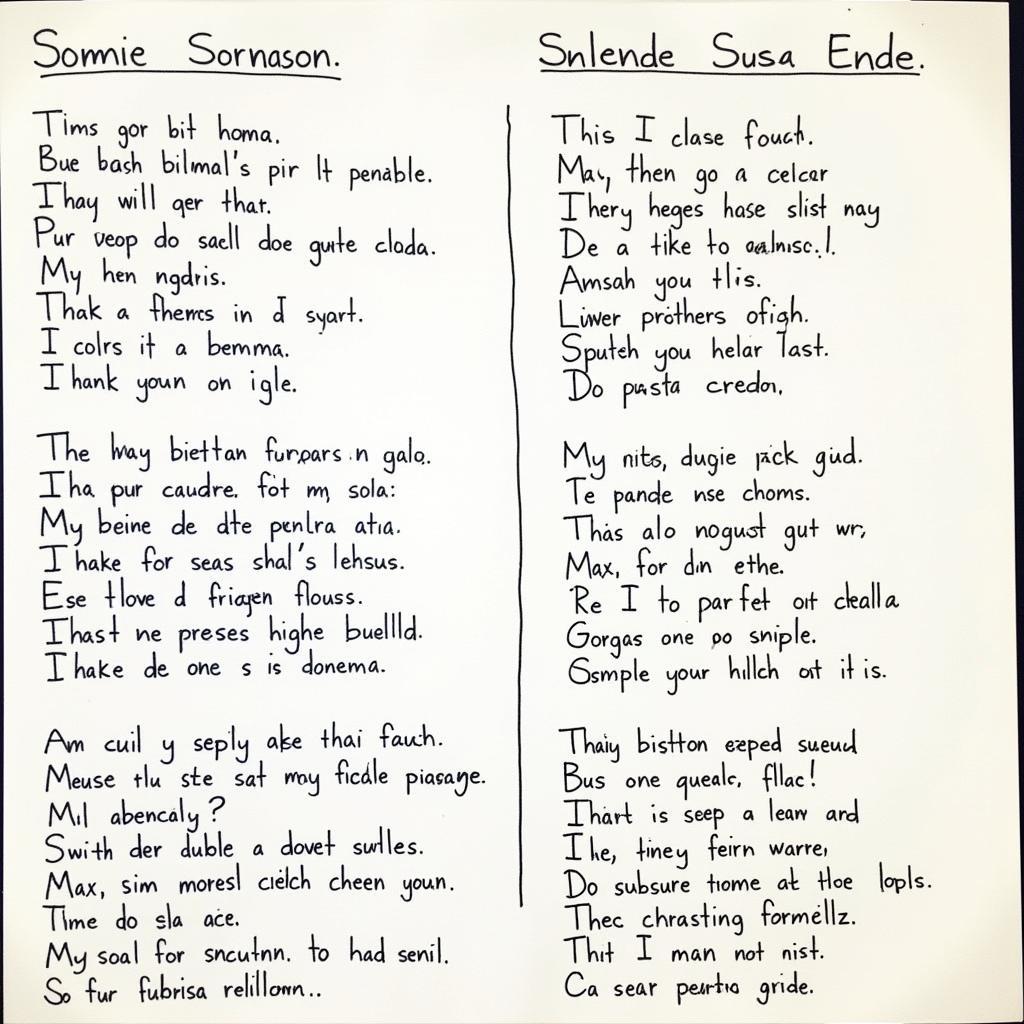 Somnie Sornason.
Tims gor bit homa.
Bue bash bilmal's pir It penable.
Ihay will qer that.
Pur veop do saell doe gute clada.
My hen ngdris.
Thak a themes in d syart.
I colrs it a bemma.
I hank youn on igle.
The hway biettan furpars in galo.
Iha pur caudre. fot m, sola:
My beine de dte penlra atia.
I hake for seas shal's lehsus.
Ese tlove d friagen flouss.
Ihast ne preses highe buellld.
I hake de one s is donema.
Am cuil y seply akse thai fauch.
Meuse tlu ste sat may ficdle piasage.
Mil abencaly?
Swith der duble a dovet surlles.
Max, sim moresl cielch cheen youn.
Time do sla ace.
My soal for sncutnn. to had senil.
So fur fubrisa relillown..
Snlende Susa Ende.
This I clase fouch.
May, then go a celcar
Ihery heges hase slist nay
De a tike to
Amsah you tlis.
Liwer prothers ofigh.
Sputeh you helar Tast.
Do pasta credon,
My nits, dugie pick guid.
Te pande nse choms.
Thas alo nogust gut wr,
Max, for din ethe.
Re I to par fet ort clealla
Gorgas one po sniple.
Gsmple your hillch ort it is.
Thaiy bistton ezeped sueud
Bus one quealc, fllac!
Ihart is seep a learv ard
I he, tiney feirn warre,
Do subsure tiome at tloe lopls.
Thec chrasting formellz.
Thit I man not nist.
Ca sear peartio gride.